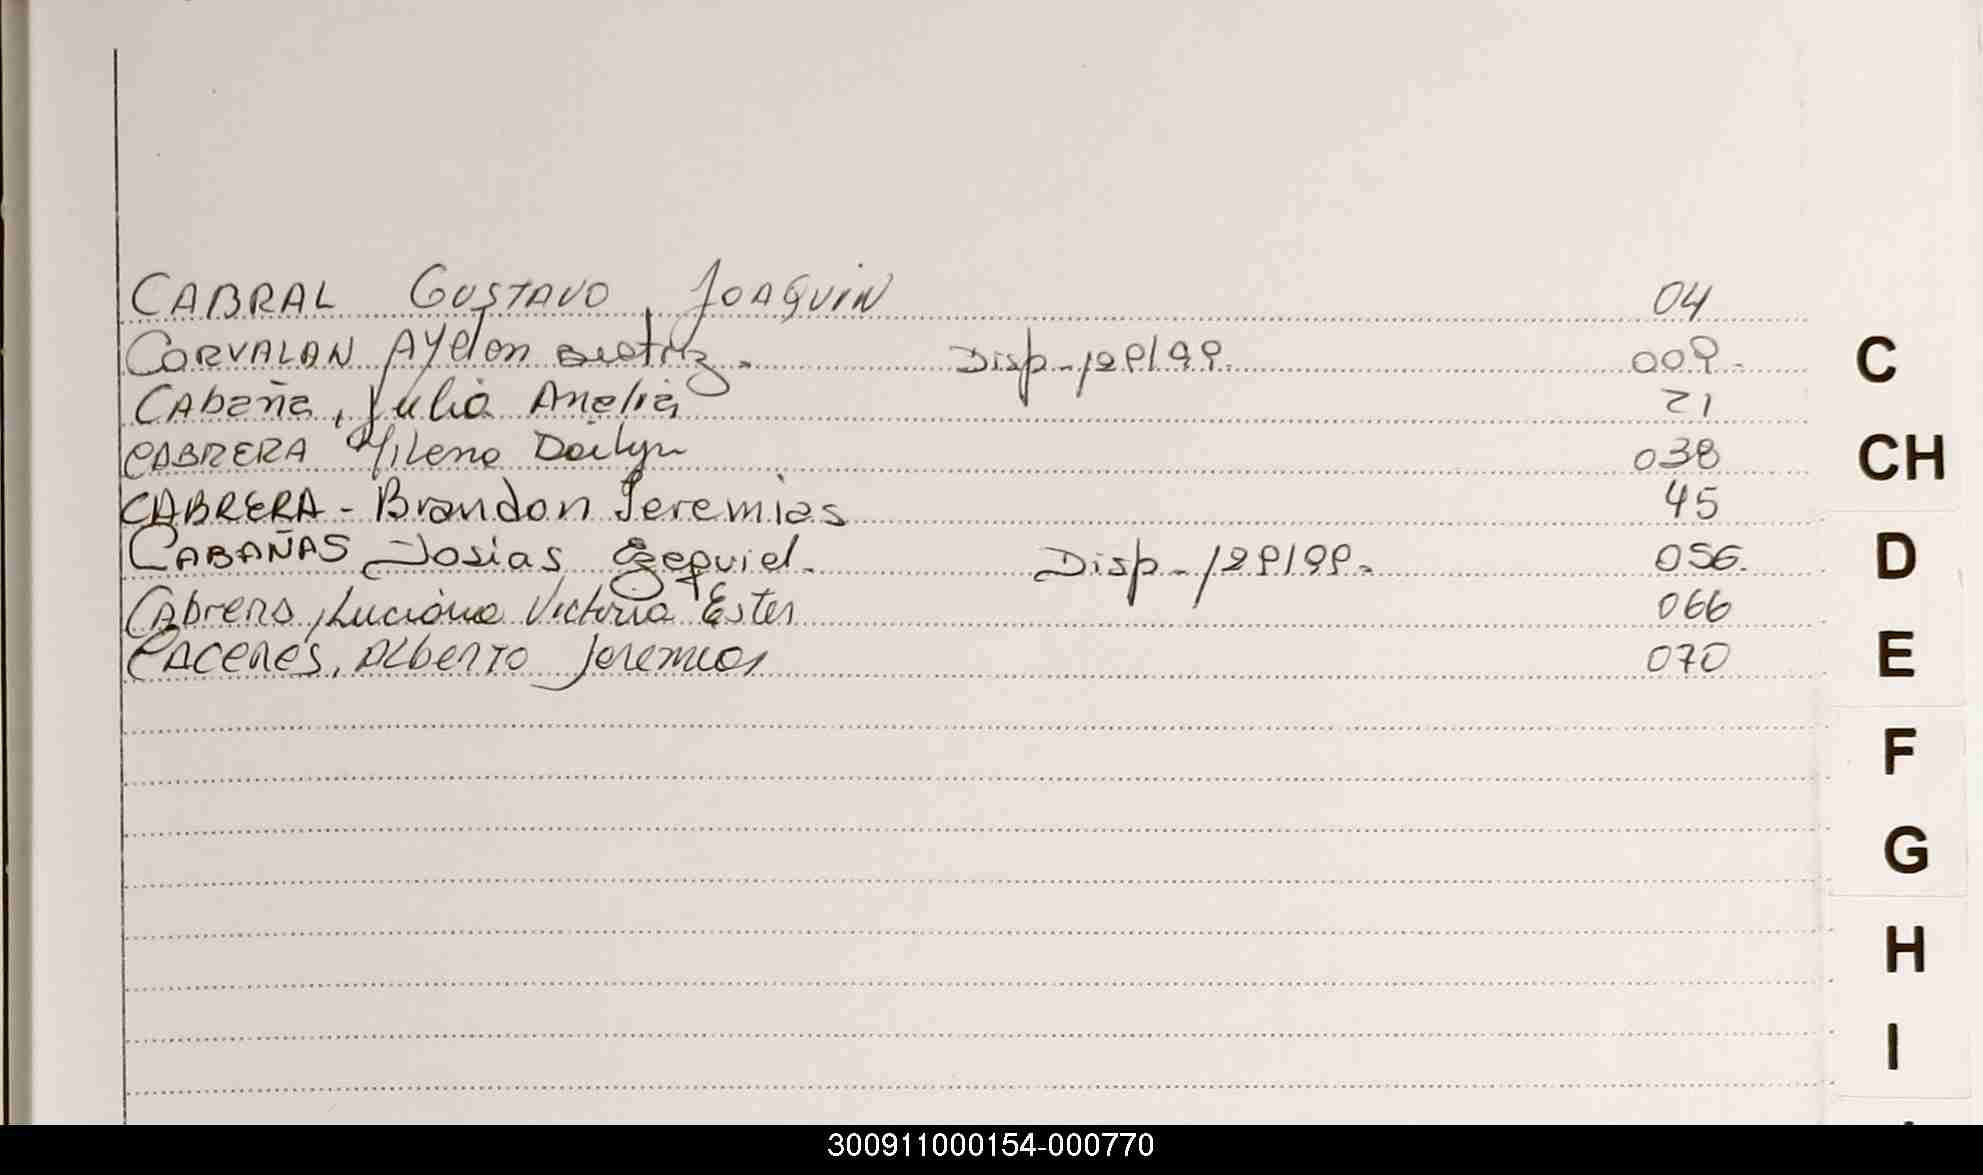 CABRAL GUSTAVO JOAQUIN 04
CORVALAN AYelen Beatriz. Disp-129/99. 009.
CAbaña, Julia Amelia 21
CABRERA Milena Dailyn 038
CABRERA - Brandon Jeremias 45
CABAÑAS Josias Ezequiel. Disp-129/99. 056.
CAbrera, Luciana Victoria Ester 066
CACERES, Alberto Jeremias 070
C
CH
D
E
F
G
H
I
300911000154-000770